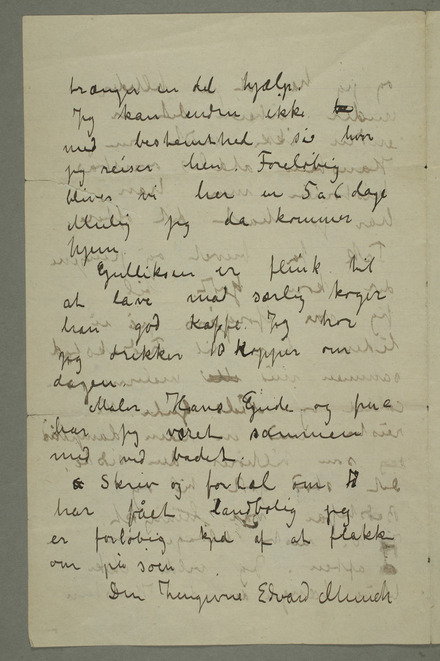 trænger en del hjælp.
Jeg kan endnu ikke
med bestemthed si hvor
jeg reiser hen. Foreløbig
blives vi her en 5 a 6 dage
Mulig jeg da kommer
hjem
Gulliksen er flink til
at lave mad særlig koger
han god kaffe Jeg tror
jeg drikker 8 Kopper om
dagen
Maler Hans Gude og frue
har jeg været sammen
med ved badet.
Skrev og fortæl om I
har fået landbolig jeg
er foreløbig kjed af at flakke
om på søen
Din hengivne Edvard Munch